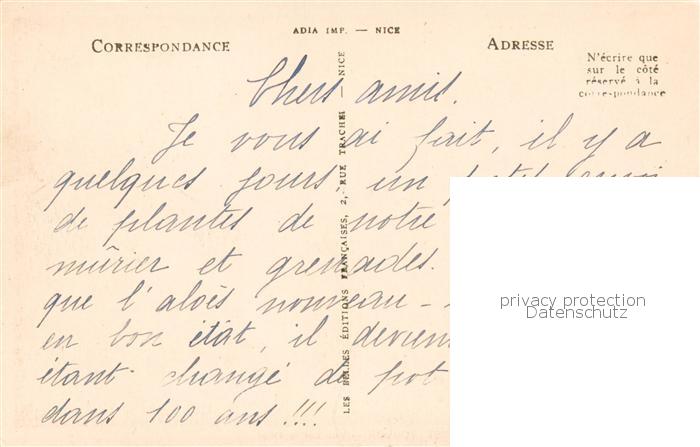 ADIA IMP. — NICE
CORRESPONDANCE
ADRESSE
N'écrire que
sur le côté
réservé à la
correspondance
Chers amis.
Je vous ai fait, il y a
quelques jours un petit envoi
de plantes de notre
mûrier et grenades.
que l'aloès nouveau-
en bon état, il devien
étant changé de pot
dans 100 ans !!!!
LES BELLES ÉDITIONS FRANÇAISES, 2, RUE TRACHEL — NICE
privacy protection
Datenschutz